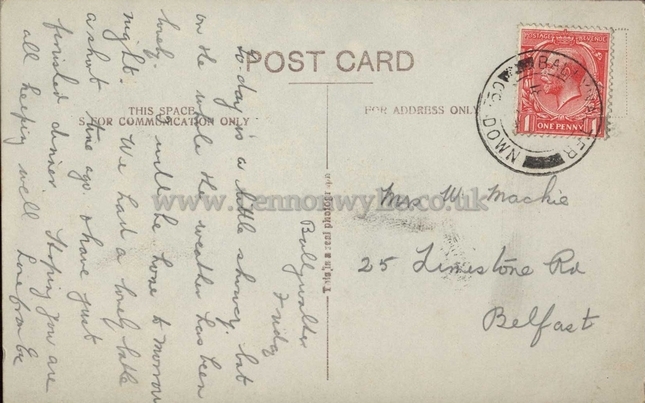 POST CARD
THIS SPACE
S FOR COMMUNICATION ONLY
FOR ADDRESS ONLY
This is a real photograph
Ballywalter
Friday
To-day is a little showery but
on the whole the weather has been
lovely. I will be home to-morrow
night. We had a lovely bathe
a short time ago & have just
finished dinner. Hoping you are
all keeping well. Love from
POSTAGE REVENUE
1 ONE PENNY 1
BALLYWALTER
CO. DOWN
Mrs W. Mackie
25 Limestone Rd
Belfast
www.pennorwyll.co.uk